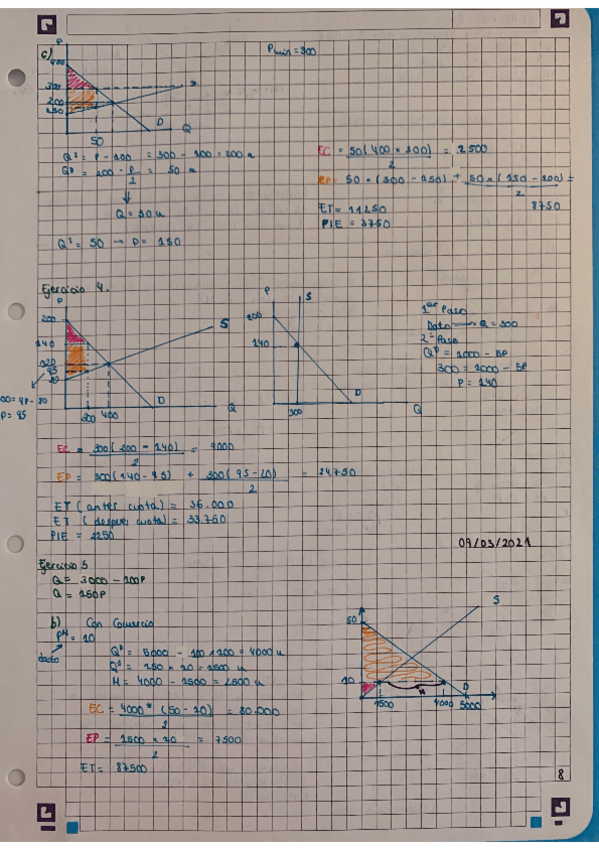 c)
P
Pmin = 300
400
300
200
150
S
D
Q
50
Qs = P - 100 = 300 - 100 = 200 u
QD = 200 - P/2 = 50 u
Q = 50 u
Qs = 50 → P = 150
EC = 50(400 × 300)/2 = 2500
EP = 50 × (300 - 150) + 50 × (150 - 100)/2 = 8750
ET = 11250
PIE = 3750
Ejercicio 4.
P
200
140
120
95
20
S
D
Q
300
400
00 = 4P - 80
P = 95
P
S
200
140
D
300
Q
1er Paso
Dato → Q = 300
2º Paso
QD = 1000 - 5P
300 = 1000 - 5P
P = 140
EC = 300(200 - 140)/2 = 9000
EP = 300(140 - 95) + 300(95 - 20)/2 = 24.750
ET (antes cuota) = 36.000
ET (despues cuota) = 33.750
PIE = 2250
09/03/2021
Ejercicio 5
Q = 5000 - 100P
Q = 150P
b) Con Comercio
PM = 10
dato
QD = 5000 - 100 × 100 = 4000 u
Qs = 150 × 10 = 1500 u
M = 4000 - 1500 = 2500 u
EC = 4000* (50 - 10)/2 = 80.000
EP = 1500 × 10/2 = 7500
ET = 87500
50
10
S
M
D
1500
4000
5000
8